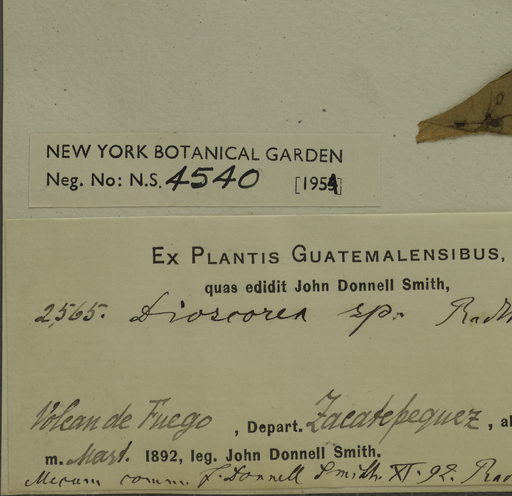 NEW YORK BOTANICAL GARDEN
Neg. No: N.S. 4540 [1954]
EX PLANTIS GUATEMALENSIBUS,
quas edidit John Donnell Smith,
2,565. Dioscorea sp.
Volcan de Fuego, Depart. Zacatepequez, al
m. Mart. 1892, leg. John Donnell Smith.
Mecum comm. J. Donnell Smith. XI. 92.